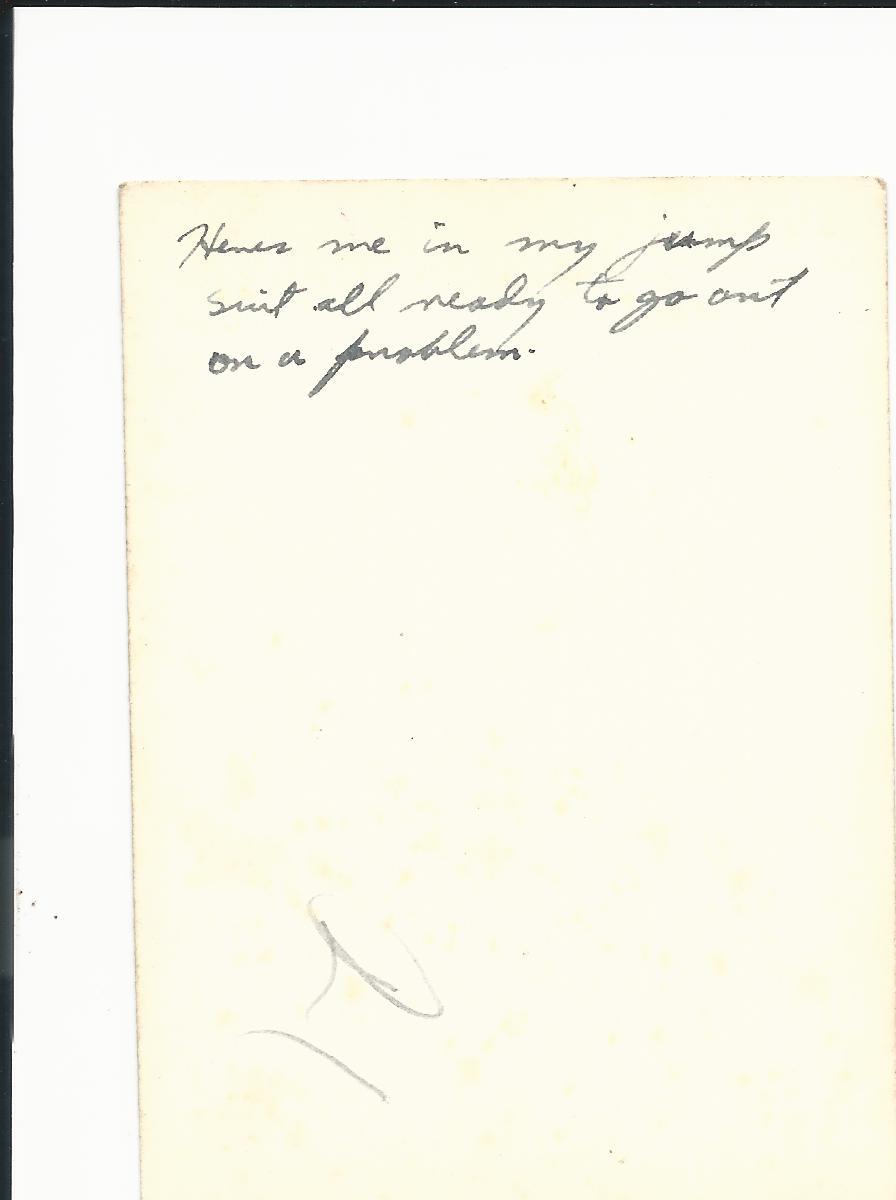 Heres me in my jump
suit all ready to go out
on a problem.